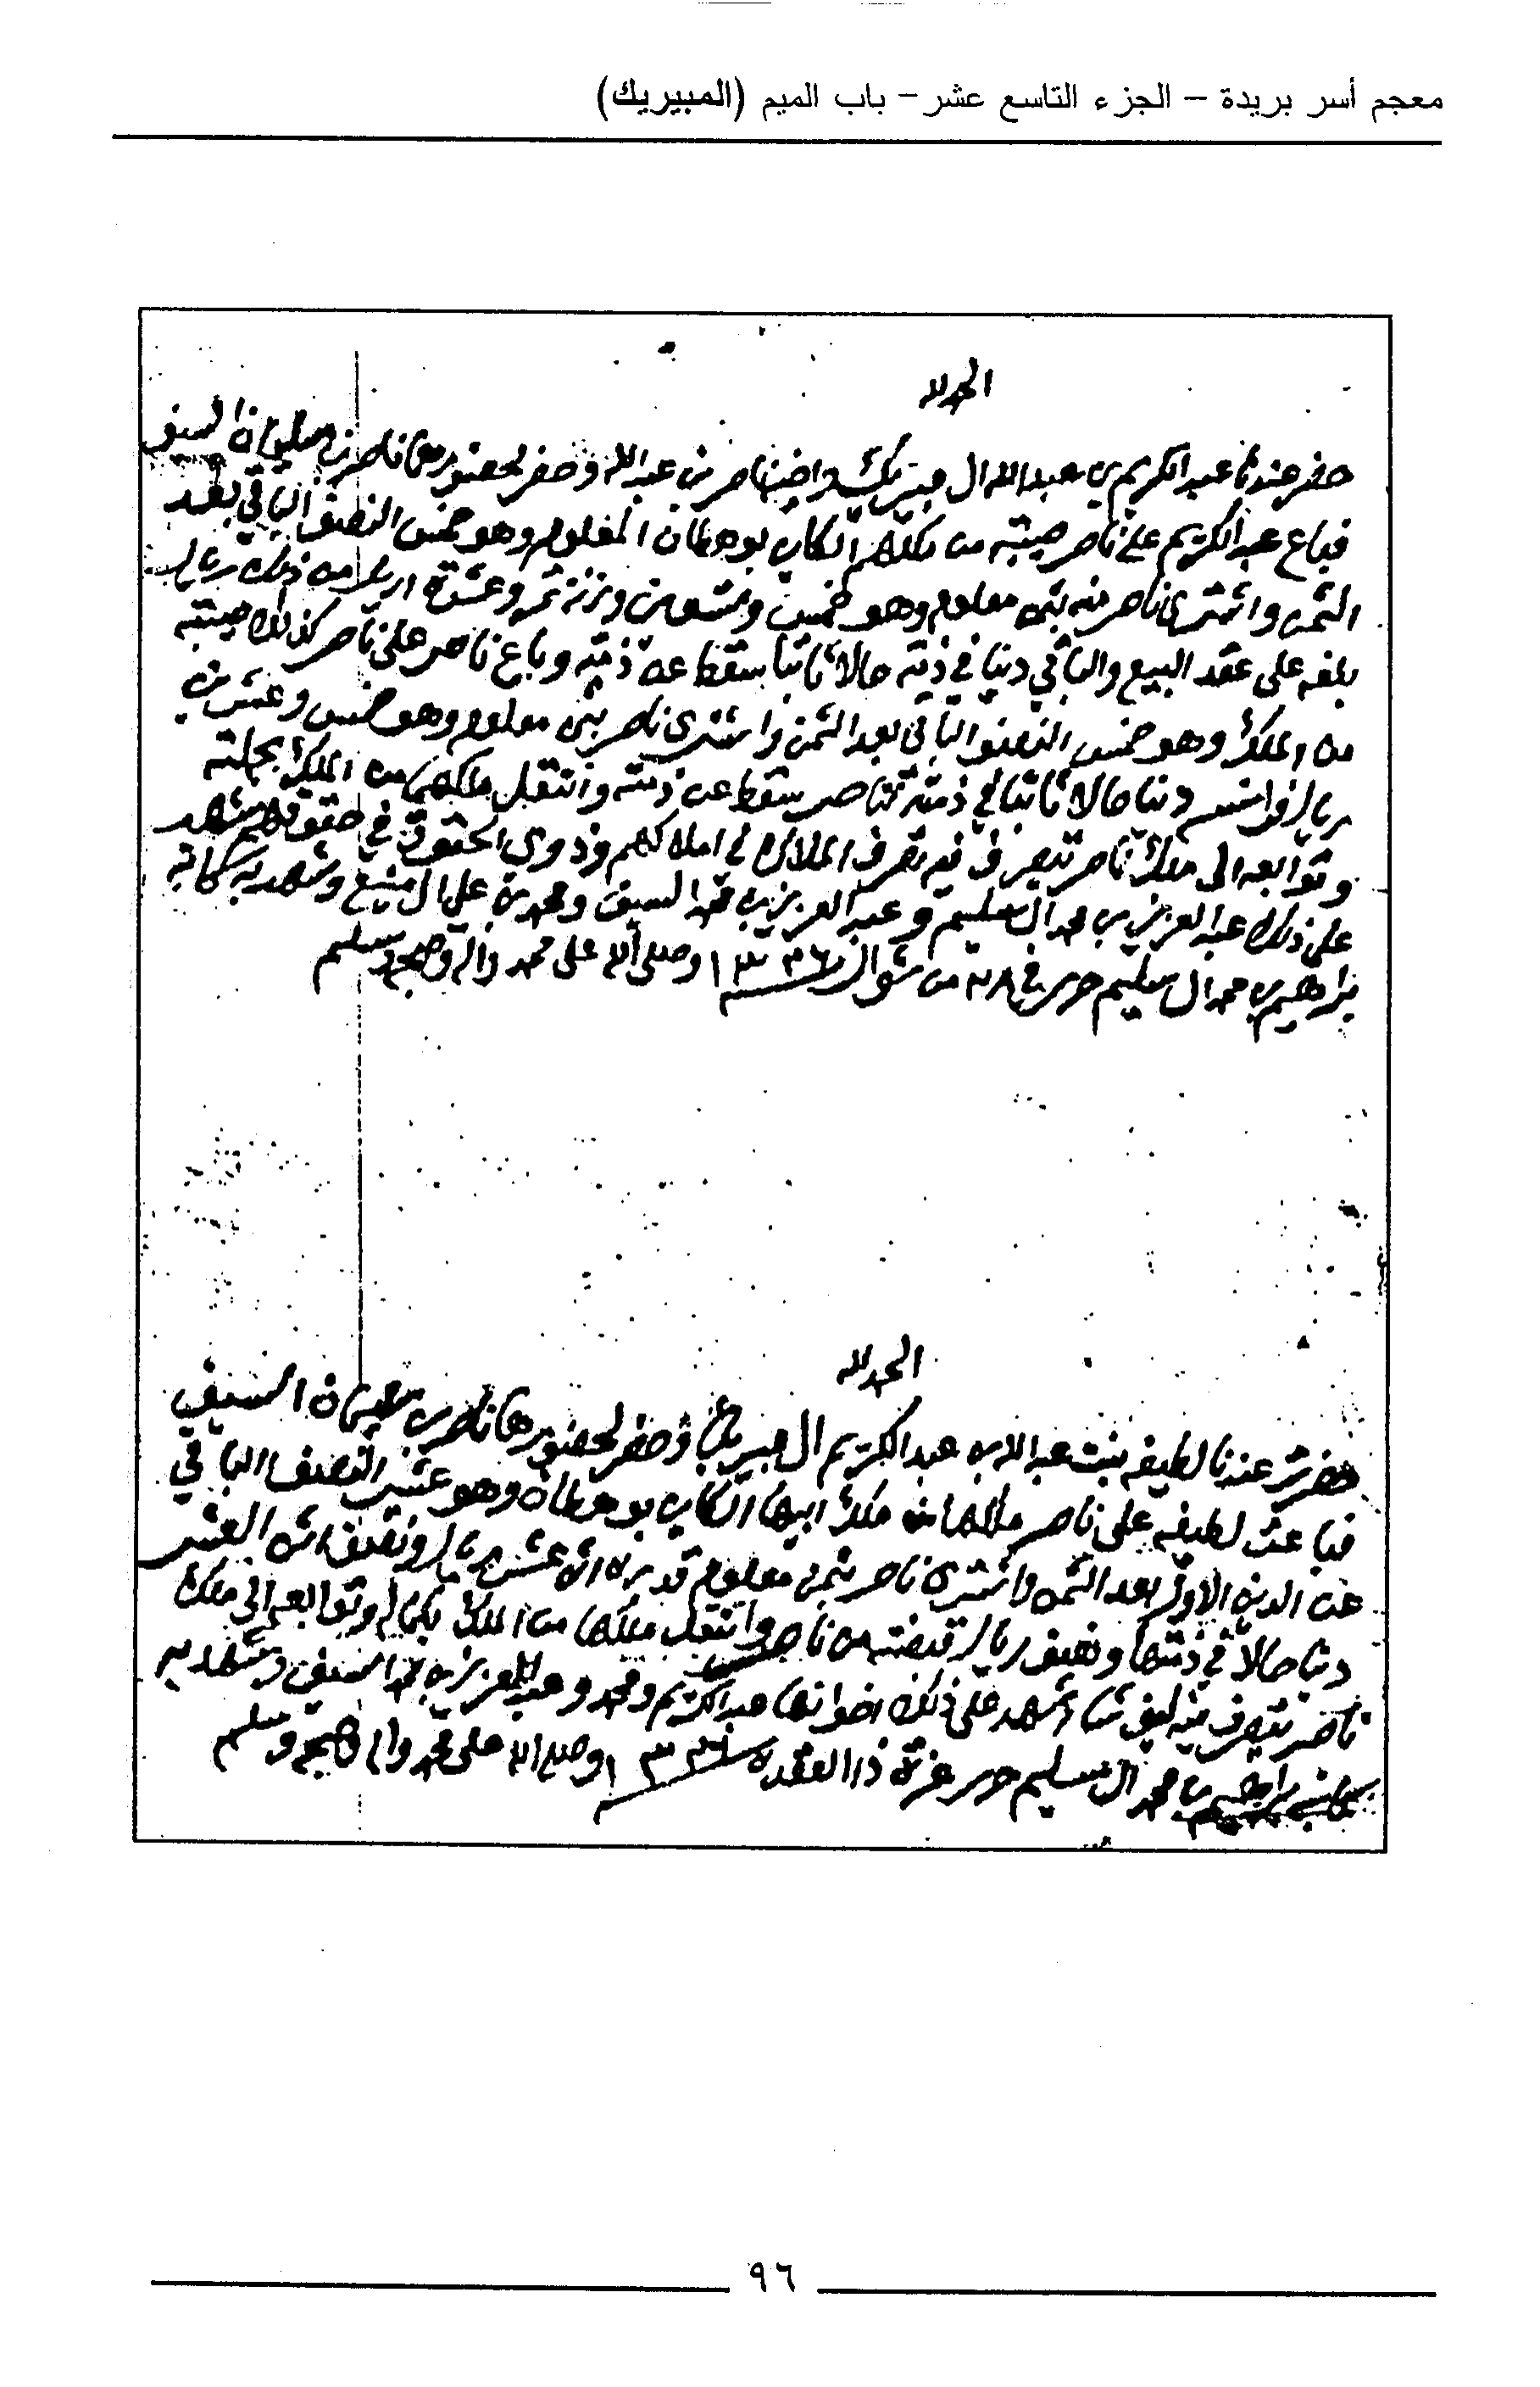 معجم أسر بريدة – الجزء التاسع عشر – باب الميم (المبيريك)
الحمد لله
حضر عندنا عبدالكريم بن عبدالله ال مبيريك واخيه ناصر بن عبدالله وحضر لحضورهما ناصر بن سليمان السيف
فباع عبدالكريم على ناصر صيبته من ملكهم الكاين بوهطان المعلوم وهو خمس النصف الباقي بعد
الثمن واشترى ناصر منه بثمن معلوم وهو خمس وتسعين وزنة تمر وعشرة اريل من ذلك ريال
بلغه على عقد البيع والباقي دينا في ذمته حالا ثابتا سقط عن ذمته وباع ناصر على ناصر كذلك صيبته
من الملك وهو خمس النصف الباقي بعد الثمن واشترى ناصر بثمن معلوم وهو خمس وعشرين
ريال فرانسه دينا حالا ثابتا في ذمة ناصر سقط عن ذمته وانتقل ملكهما من الملك بجملته
وتوابعه الى ملك ناصر يتصرف فيه تصرف الملاك في املاكهم وذوي الحقوق في حقوقهم شهد
على ذلك عبدالعزيز بن محمد ال سليم وعبدالعزيز بن محمد السيف ومحمد بن علي ال منيع وشهد به كاتبه
براهيم بن محمد ال سليم حرر في ٢٨ من شوال ١٣٣٦ وصلى الله على محمد واله وصحبه وسلم
الحمد لله
حضرت عندنا لطيفه بنت عبدالله بن عبدالكريم ال مبيريك وحضر لحضورها ناصر بن سليمان السيف
فباعت لطيفه على ناصر مالها من ملك ابيها الكاين بوهطان وهو عشر النصف الباقي
عن الدين الاول بعد الثمن واشترى ناصر بثمن معلوم قدره اثن عشر ريال ونصف اثن العشر
دينا حالا في ذمتها ونصف ريال قبضته من ناصر وانتقل ملكها من الملك بكماله وتوابعه الى ملك
ناصر يتصرف فيه كيف شاء شهد على ذلك اخوانها عبدالكريم ومحمد وعبدالعزيز بن محمد السيف وشهد به
كاتبه براهيم بن محمد ال سليم حرر غرة ذا القعده ١٣٣٦ وصلى الله على محمد واله وصحبه وسلم
٩٦